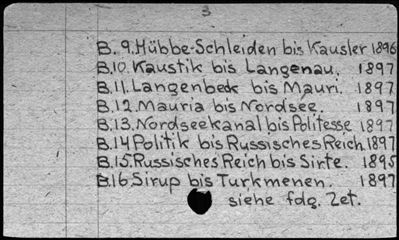 3
B. 9. Hübbe-Schleiden bis Kausler 1896
B.10. Kaustik bis Langenau. 1897
B.11. Langenbeck bis Mauri. 1897
B.12. Mauria bis Nordsee. 1897
B.13. Nordseekanal bis Politesse 1897
B.14 Politik bis Russisches Reich 1897
B.15. Russisches Reich bis Sirte. 1895
B.16. Sirup bis Turkmenen. 1897
siehe fdg. Zet.